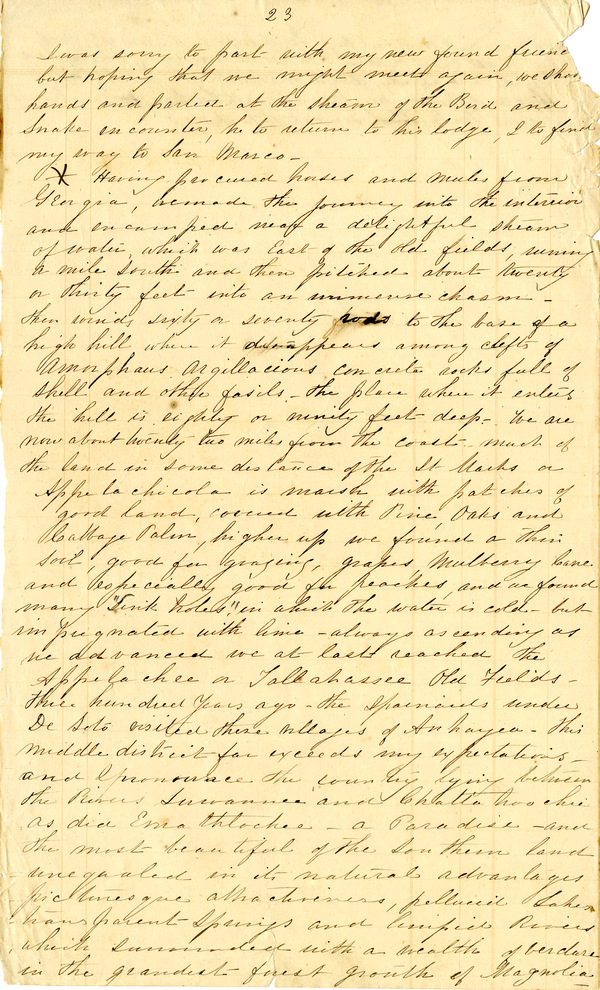 23
I was sorry to part with my new found friend
but hoping that we might meet again, we shook
hands and parted at the stream of the Bird and
Snake encounter, he to return to his lodge, I to find
my way to San Marco -
Having procured horses and mules from
Georgia, we made the journey into the interior
and encamped near a delightful stream
of water, which was East of the old fields, runing
a mile South and then pitched about twenty
or thirty feet into an immense chasm -
then winds sixty or seventy rods to the base of a
high hill where it disappears among clefts of
Amorphous Argillacious concrete rocks full of
shell and other fosils - the place where it enters
the hill is eighty or ninity feet deep - We are
now about twenty two miles from the coast - much of
the land in some distance of the St Marks or
Appelachicola is marsh with patches of
good land, covered with Pine, Oaks and
Cabbage Palm, higher up we found a thin
soil, good for grazing, grapes, Mulberry Cane
and especially good for peaches, and we found
many "Sink holes", in which the water is cold - but
impregnated with lime - always ascending as
we advanced we at last reached the
Appelachee or Tallahassee Old Fields -
three hundred Years ago - the Spainards under
De Soto visited these villages of Anhayea - this
middle district far exceeds my expectations -
and I pronounce the country lying between
the Rivers Suwannee and Chattahoochie
as did Emathlochee - a Paradise - and
the most beautiful of the Southern land
unequaled in its natural advantages
picturesque attractiveness, pellucid Lakes
transparent Springs and limpid Rivers
which surrounded with a wealth of verdure
in the grandest forest growth of Magnolia